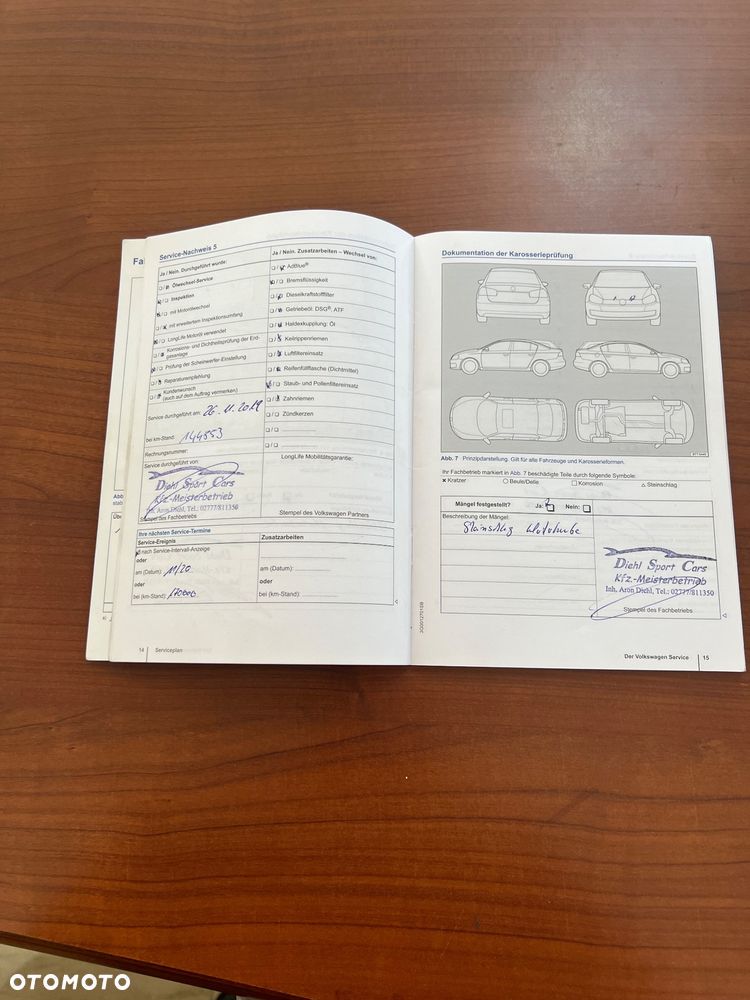 Fa
Service-Nachweis 5
Ja / Nein. Durchgeführt wurde:
Ölwechsel-Service
Inspektion
mit Motorölwechsel
mit erweitertem Inspektionsumfang
LongLife Motoröl verwendet
Korrosions- und Dichtheitsprüfung der Erd-
gasanlage
Prüfung der Scheinwerfer-Einstellung
Reparaturempfehlung
Kundenwunsch
(auch auf dem Auftrag vermerken)
Service durchgeführt am: 26.11.2019
bei km-Stand: 144853
Rechnungsnummer:
Service durchgeführt von:
Diehl Sport Cars
Kfz.-Meisterbetrieb
Inh. Aron Diehl, Tel.: 02777/811350
Stempel des Fachbetriebs
Ja / Nein. Zusatzarbeiten – Wechsel von:
AdBlue®
Bremsflüssigkeit
Dieselkraftstofffilter
Getriebeöl: DSG®, ATF
Haldexkupplung: Öl
Keilrippenriemen
Luftfiltereinsatz
Reifenfüllflasche (Dichtmittel)
Staub- und Pollenfiltereinsatz
Zahnriemen
Zündkerzen
LongLife Mobilitätsgarantie:
Stempel des Volkswagen Partners
Ihre nächsten Service-Termine
Service-Ereignis
nach Service-Intervall-Anzeige
oder
am (Datum): 11/20
oder
bei (km-Stand): 170000
Zusatzarbeiten
am (Datum):
oder
bei (km-Stand):
14 Serviceplan
Dokumentation der Karosserieprüfung
Abb. 7 Prinzipdarstellung. Gilt für alle Fahrzeuge und Karosserieformen.
Ihr Fachbetrieb markiert in Abb. 7 beschädigte Teile durch folgende Symbole:
× Kratzer ○ Beule/Delle □ Korrosion △ Steinschlag
Mängel festgestellt? Ja: Nein:
Beschreibung der Mängel:
Diehl Sport Cars
Kfz.-Meisterbetrieb
Inh. Aron Diehl, Tel.: 02777/811350
Stempel des Fachbetriebs
Der Volkswagen Service 15
OTOMOTO